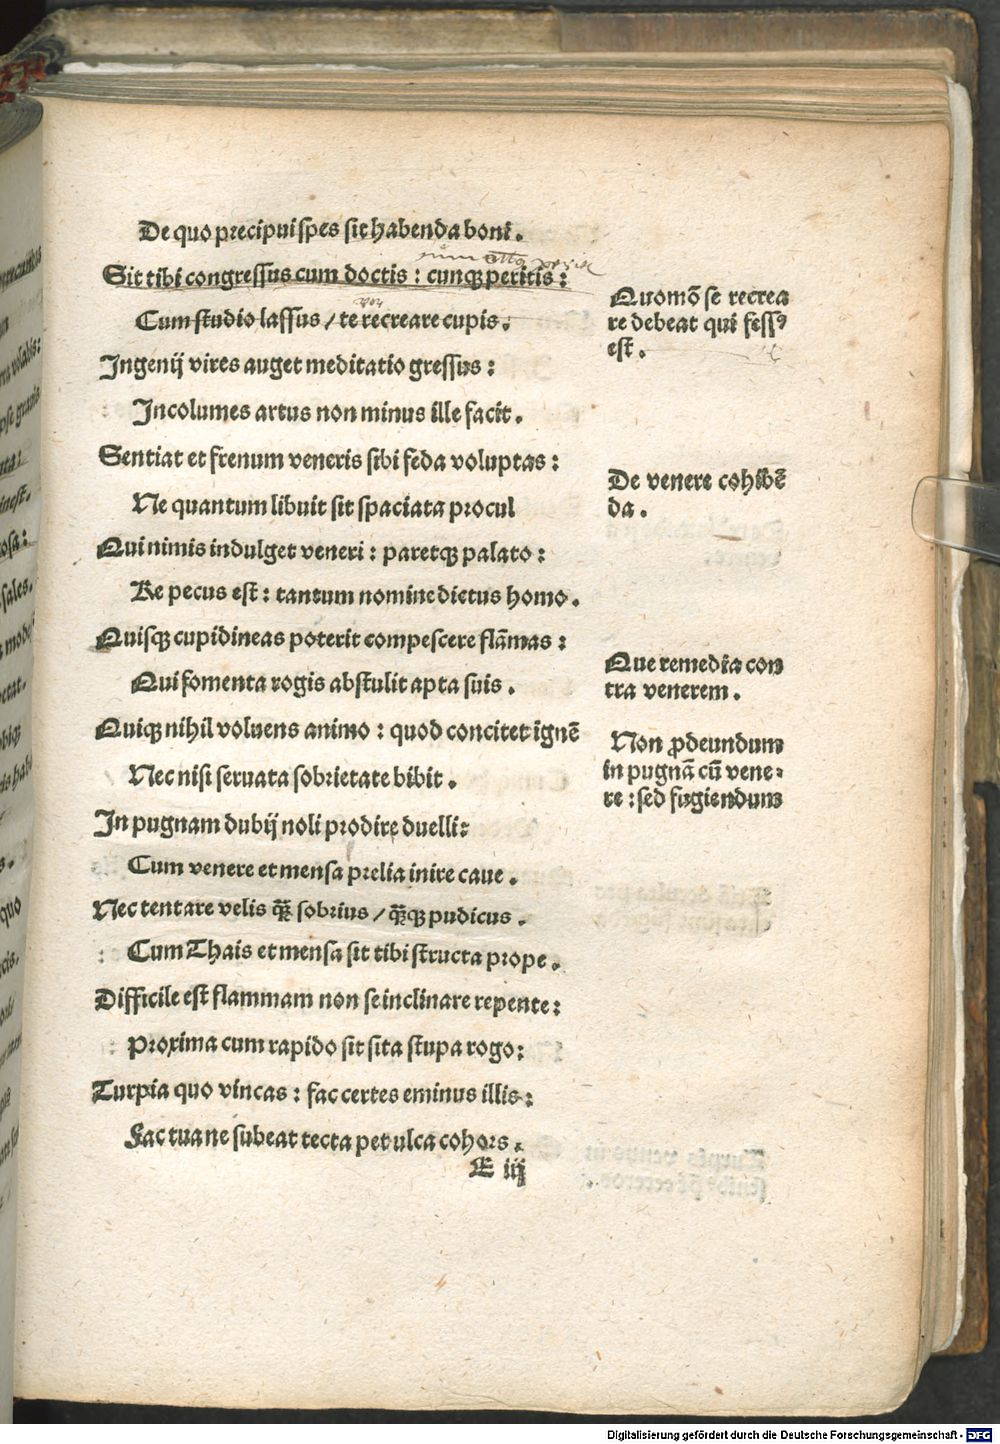 De quo precipui spes sit habenda boni.
Sit tibi congressus cum doctis: cunqꝫ peritis:
Cum studio lassus / te recreare cupis.
Quomō se recrea
re debeat qui fessꝰ
est.
Ingenij vires auget meditatio gressus:
Incolumes artus non minus ille facit.
Sentiat et frenum veneris sibi feda voluptas:
Ne quantum libuit sit spaciata procul
De venere cohibē
da.
Qui nimis indulget veneri: paretqꝫ palato:
Re pecus est: tantum nomine dictus homo.
Quisqꝫ cupidineas poterit compescere flāmas:
Qui fomenta rogis abstulit apta suis.
Que remedia con
tra venerem.
Quiqꝫ nihil voluens animo: quod concitet ignē
Nec nisi seruata sobrietate bibit.
Non ꝓdeundum
in pugnā cū vene-
re: sed fugiendum
In pugnam dubij noli prodire duelli:
Cum venere et mensa prelia inire caue.
Nec tentare velis qꝫ̄ sobrius / qꝫ̄qꝫ pudicus.
Cum Thais et mensa sit tibi structa prope.
Difficile est flammam non se inclinare repente:
Proxima cum rapido sit sita stupa rogo:
Turpia quo vincas: fac certes eminus illis:
Fac tua ne subeat tecta petulca cohors.
E iij
Digitalisierung gefördert durch die Deutsche Forschungsgemeinschaft - DFG